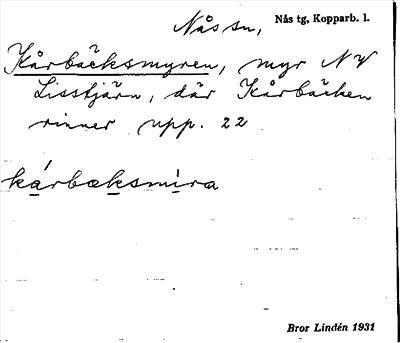 Nås sn, Nås tg, Kopparb. l.
Kårbäcksmyren, myr NV
Lisstjärn, där Kårbäcken
rinner upp. 22
kárbæksmira
Bror Lindén 1931